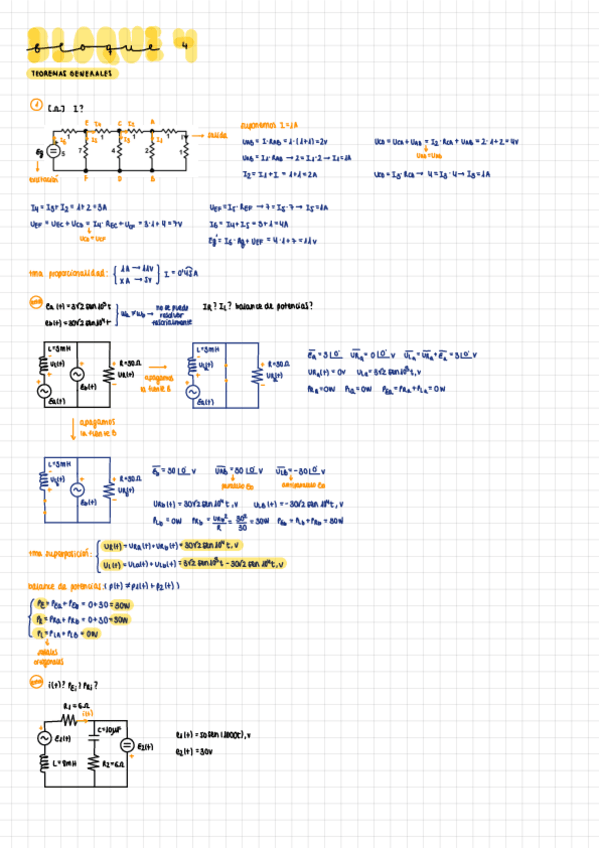 BLOQUE 4
bloque 4
TEOREMAS GENERALES
1 [Ω] I?
E I4 C I2 A
I6 1 I5 1 I3 1 I1 1 I
Eg 5 7 4 2 1
salida
excitación
F D B
suponemos I = 1A
UAB = I·RAB = 1·(1+1) = 2V
UAB = I1·RAB → 2 = I1·2 → I1 = 1A
I2 = I1 + I = 1+1 = 2A
UCD = UCA + UAB = I2·RCA + UAB = 2·1+2 = 4V
UCD = I3·RCD → 4 = I3·4 → I3 = 1A
I4 = I3 + I2 = 1+2 = 3A
UEF = UEC + UCD = I4·REC + UCD = 3·1+4 = 7V
UCD = UCF
UEF = I5·REF → 7 = I5·7 → I5 = 1A
I6 = I4 + I5 = 3+1 = 4A
Eg' = I6·Rg + UEF = 4·1+7 = 11V
tma proporcionalidad: { 1A → 11V
XA → 5V } I = 0'45A
ea(t) = 3√2 sen 10³t
eb(t) = 30√2 sen 10⁴t
} ωa ≠ ωb → no se puede resolver fasorialmente
IR? IL? balance de potencias?
L=3mH
UL(t)
eb(t)
R=30Ω
UR(t)
ea(t)
apagamos la fuente B
L=3mH
R=30Ω
ēA = 3|0° V URA = 0|0° V ULA = URA + ēA = 3|0° V
URA(t) = 0V ULA = 3√2 sen 10³t, V
PRA = 0W PLA = 0W PEA = PRA + PLA = 0W
apagamos la fuente B
L=3mH
UL(t)
eb(t)
R=30Ω
ēb = 30|0° V URB = 30|0° V ULB = -30|0° V
paralelo eb
antiparalelo eb
URb(t) = 30√2 sen 10⁴t, V ULb(t) = -30√2 sen 10⁴t, V
PLb = 0W PRb = URb²/R = 30²/30 = 30W PEb = PLb + PRb = 30W
tma superposición: { UR(t) = URa(t) + URb(t) = 30√2 sen 10⁴t, V
UL(t) = ULa(t) + ULb(t) = 3√2 sen 10³t - 30√2 sen 10⁴t, V
balance de potencias: (p(t) ≠ p1(t) + p2(t))
PE = PEA + PEB = 0+30 = 30W
PR = PRA + PRB = 0+30 = 30W
PL = PLA + PLB = 0W
señales ortogonales
i(t)? PEi? PRi?
R1=6Ω
i(t)
e1(t)
C=10μF
e2(t)
L=8mH
R2=6Ω
e1(t) = 50 sen(1000t), V
e2(t) = 30V